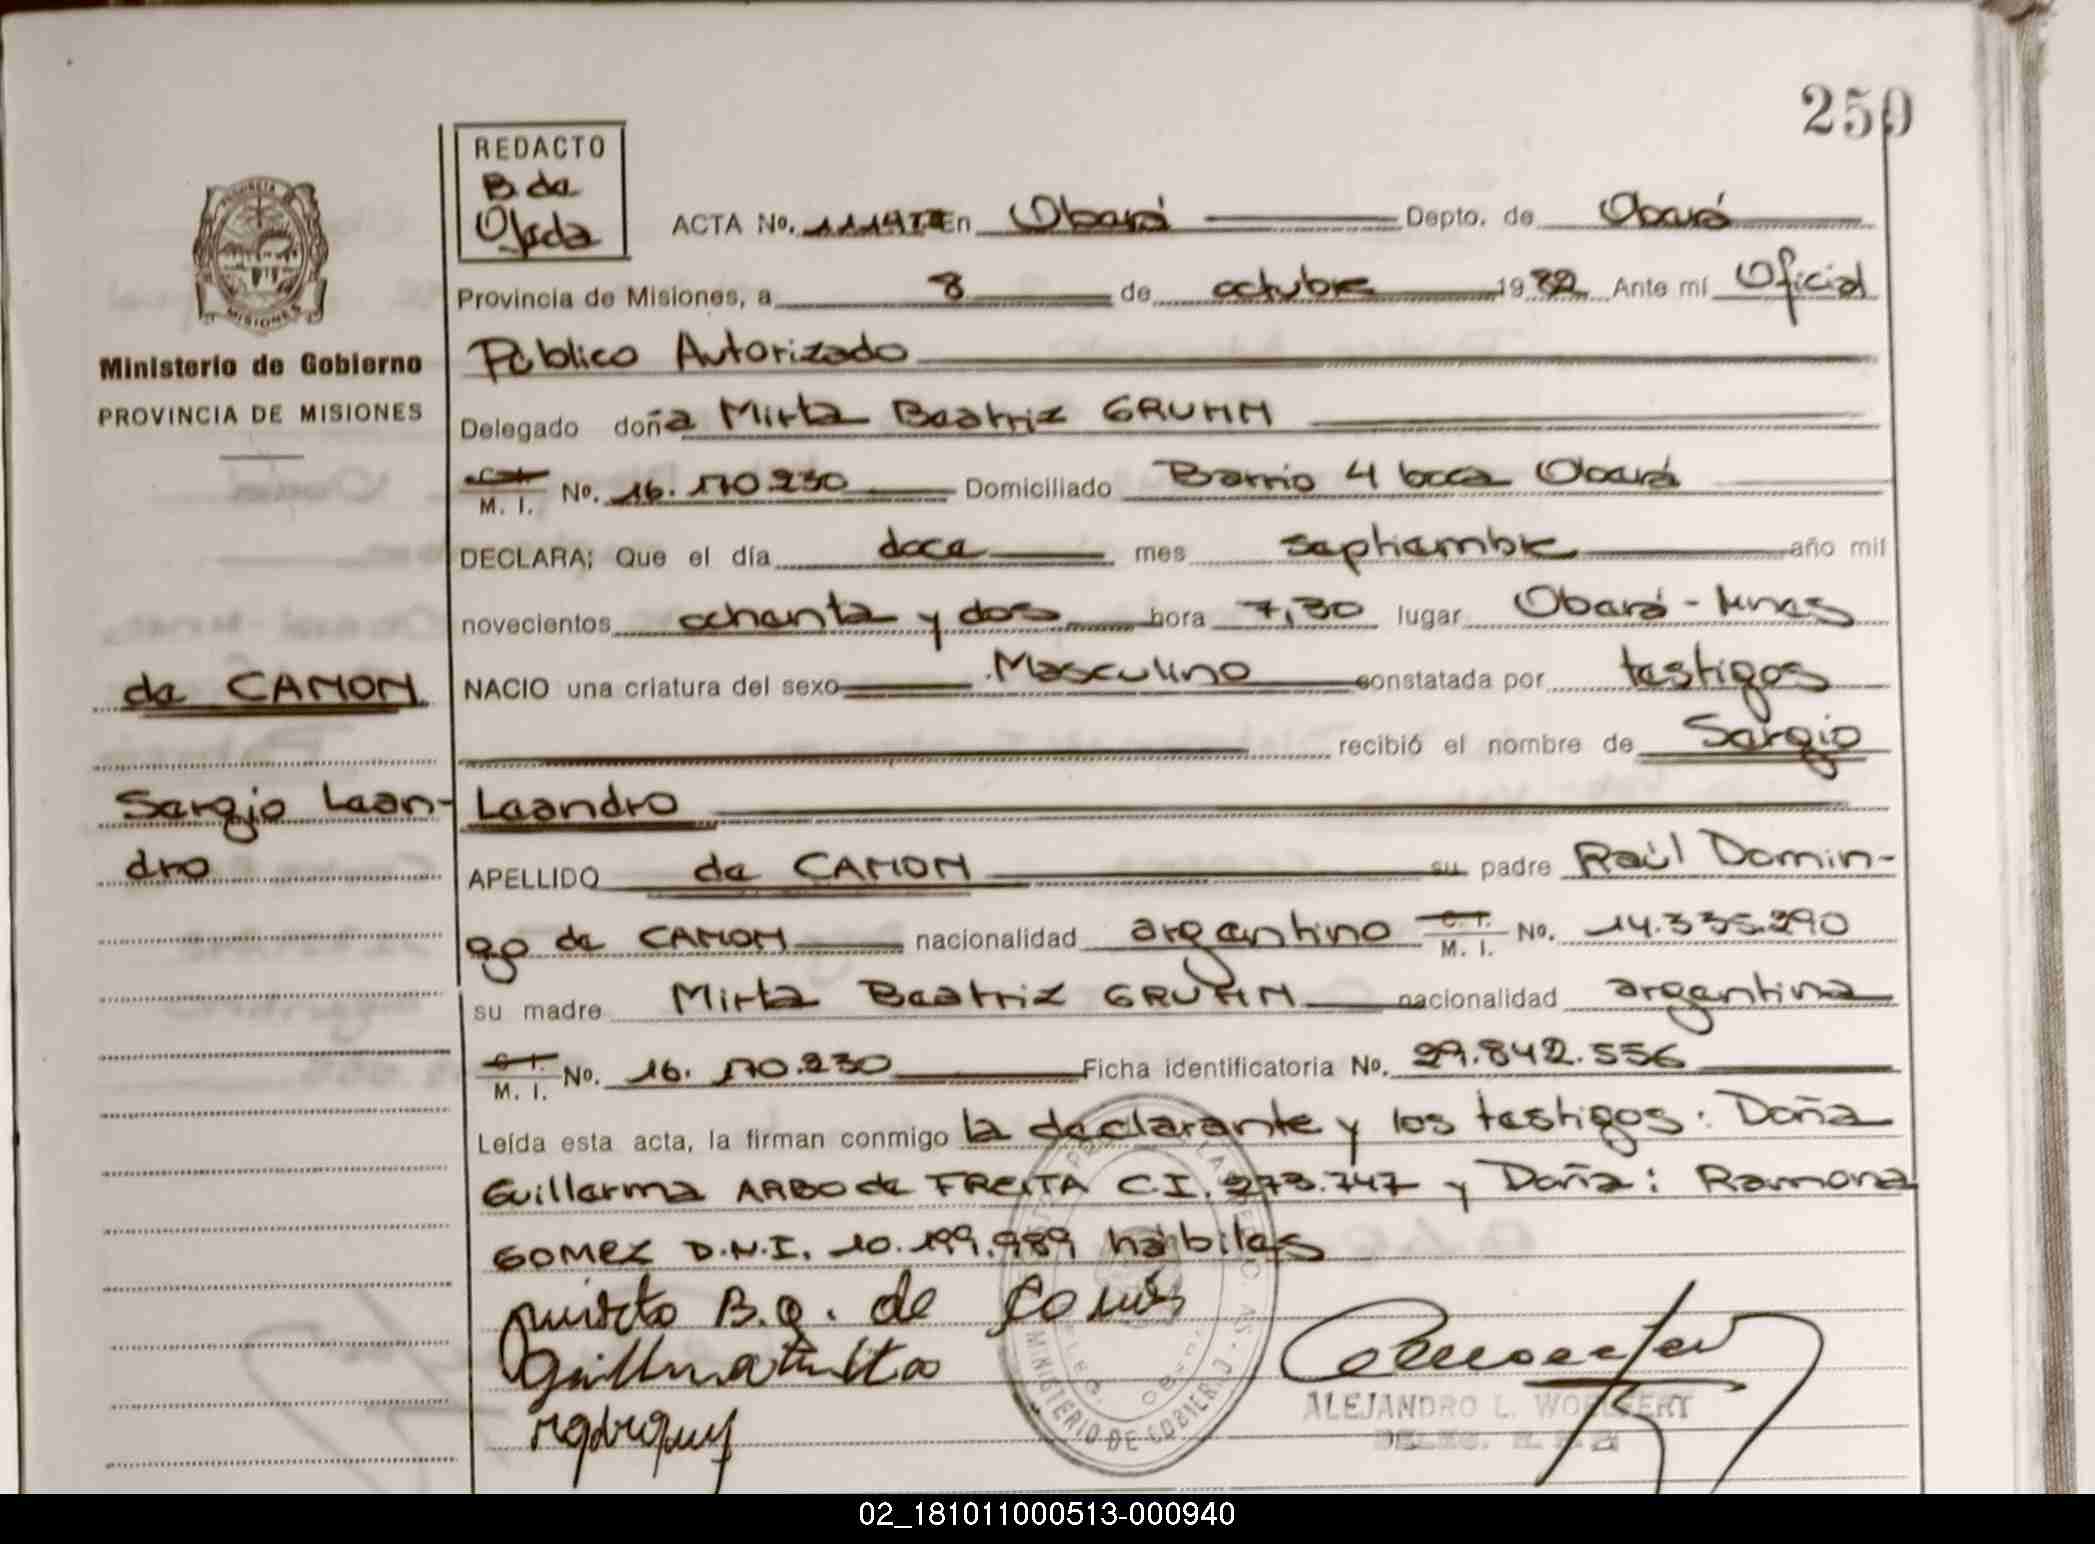 250
REDACTO
B de
Ojeda
ACTA No. En Oberá Depto. de Oberá
Provincia de Misiones, a 8 de octubre 1982 Ante mí Oficial
Ministerio de Gobierno
PROVINCIA DE MISIONES
Público Autorizado
Delegado doña Mirta Beatriz GRUHN
M. I. No. 16.170.230 Domiciliado Barrio 4 boca Oberá
DECLARA; Que el día doce mes septiembre año mil
novecientos ochenta y dos hora 7,30 lugar Oberá - Mnes
de CAMON NACIO una criatura del sexo Masculino constatada por testigos
recibió el nombre de Sergio
Sergio Lean- Leandro
dro APELLIDO de CAMON su padre Raúl Domin-
go de CAMON nacionalidad argentino C. I. M. I. No. 14.335.290
su madre Mirta Beatriz GRUHN nacionalidad argentina
C. I. M. I. No. 16.170.230 Ficha identificatoria No. 29.842.556
Leída esta acta, la firman conmigo la declarante y los testigos: Doña
Guillerma ARBO de FREITA C.I. 273.747 y Doña: Ramona
GOMEZ D.N.I. 10.199.989 hábiles
B.G. de
MINISTERIO DE GOBIERNO
ALEJANDRO L. WOLFFERT
DELEG.
PROVINCIA
MISIONES
02_181011000513-000940